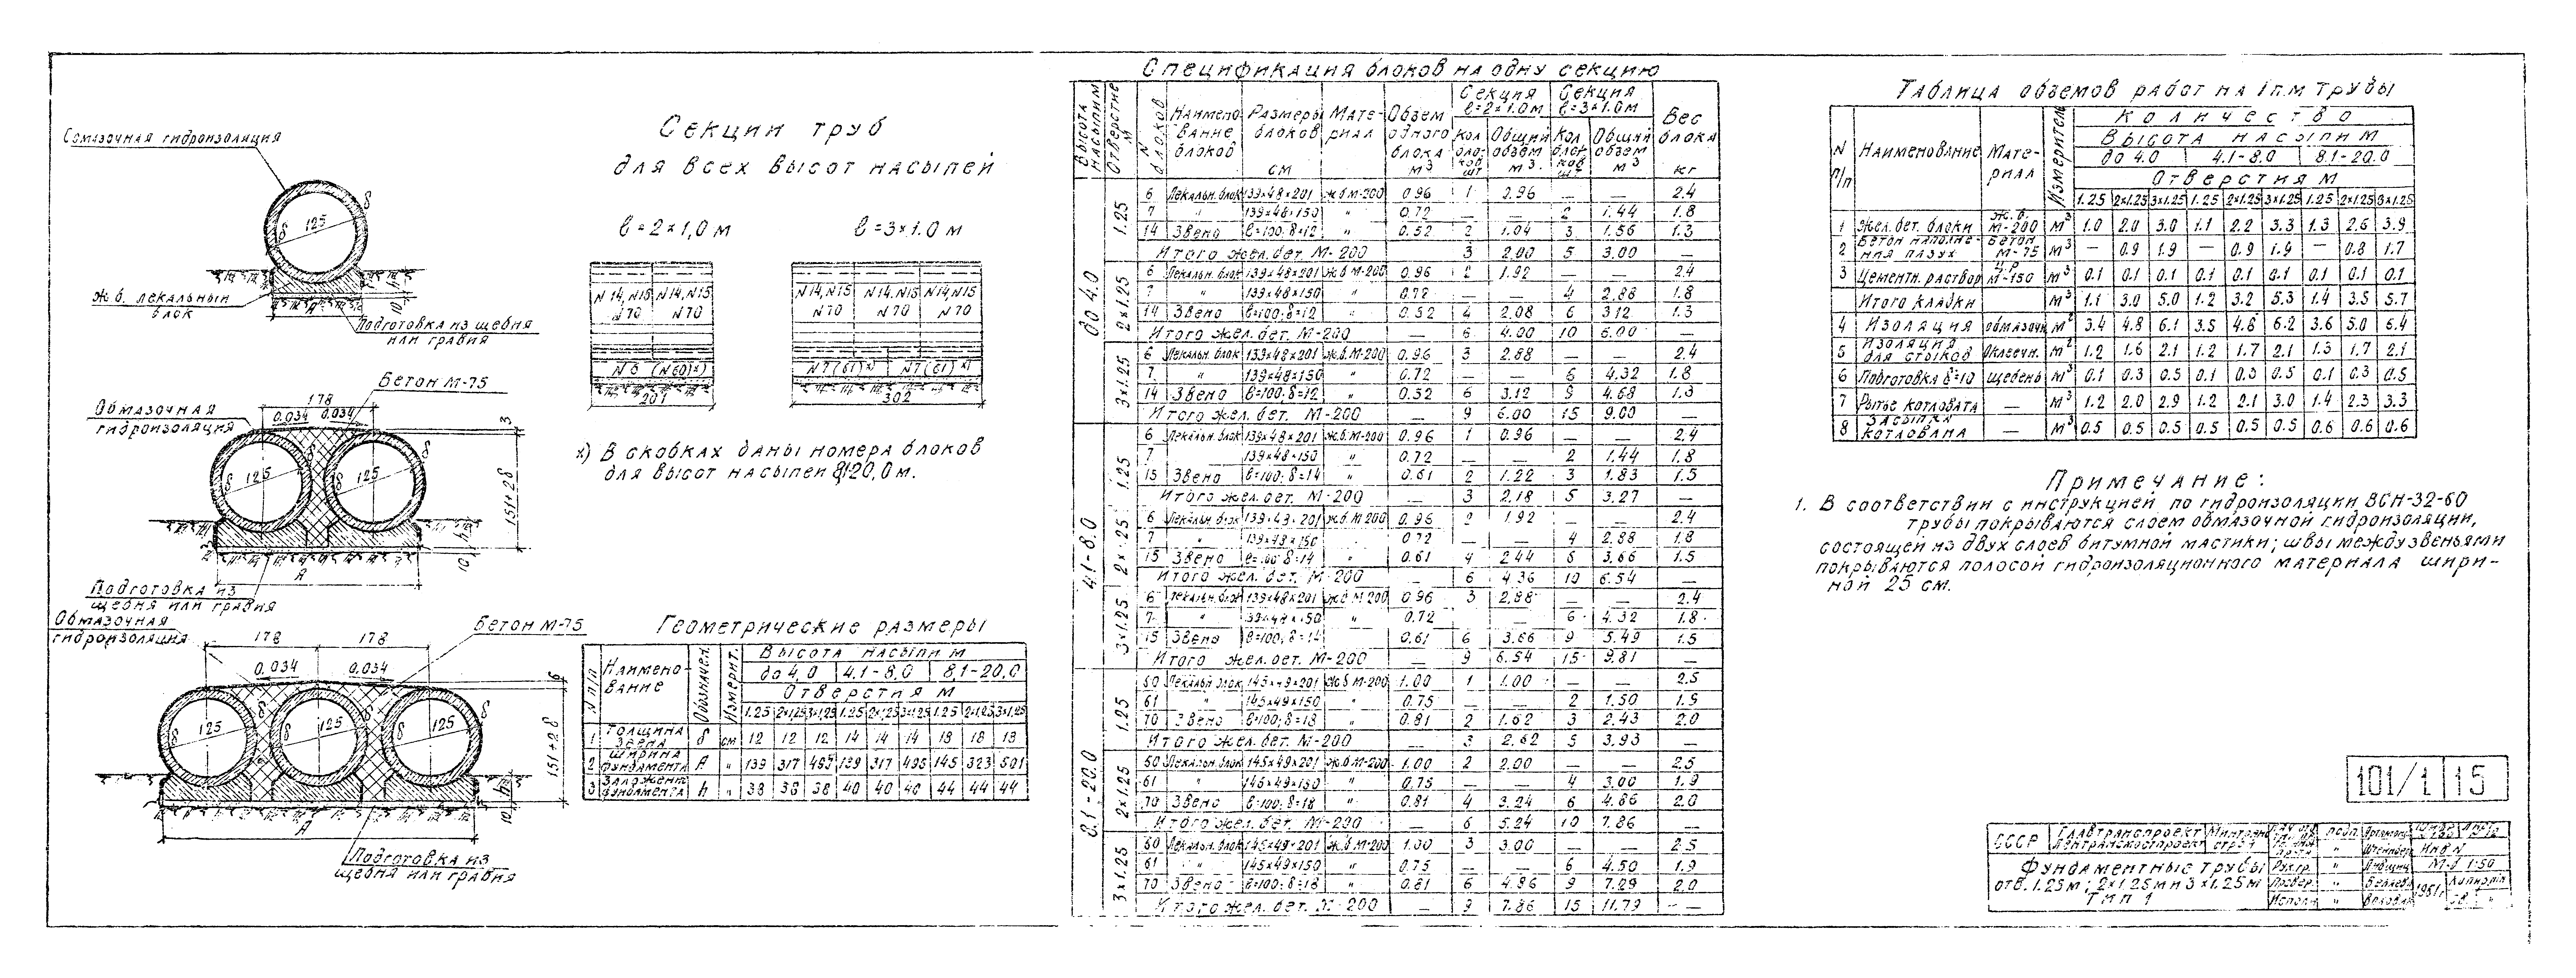 Секции труб
для всех высот насыпей
ℓ=2×1,0 м
ℓ=3×1.0 м
N14, N15 N14, N15
N70 N70
N6 (N60)х)
201
N14, N15 N14, N15 N14, N15
N70 N70 N70
N7 (61)х) N7 (61)х)
302
х) В скобках даны номера блоков
для высот насыпей 8,1÷20,0 м.
Обмазочная гидроизоляция
δ 125 δ
ж.б. лекальный
блок
Подготовка из щебня
или гравия
Бетон М-75
178
0.034 0.034
Обмазочная
гидроизоляция
δ 125 δ 125
3
151+2δ
h
10
А
Подготовка из
щебня или гравия
Обмазочная
гидроизоляция
178 178
Бетон М-75
0.034 0.034
125 125 125
6
151+2δ
h
10
А
Подготовка из
щебня или гравия
Геометрические размеры
N п/п Наименование Обозначен. Измерит. Высота насыпи м
до 4,0 4.1-8,0 8,1-20,0
Отверстия м
1.25 2×1,25 3×1,25 1.25 2×1,25 3×1.25 1.25 2×1,25 3×1,25
1 Толщина звена δ см 12 12 12 14 14 14 18 18 18
2 Ширина фундамента А " 139 317 495 139 317 495 145 323 501
3 Заложен. фундамента h " 38 38 38 40 40 40 44 44 44
Спецификация блоков на одну секцию
Высота насыпи м Отверстие м N блоков Наименование блоков Размеры блоков см Материал Объем одного блока м³ Секция ℓ=2×1.0м Секция ℓ=3×1.0м Вес блока кг
Кол. блоков шт Общий объем м³ Кол. блоков шт Общий объем м³
до 4.0
1.25
6 Лекальн. блок 139×48×201 ж.б М-200 0.96 1 0.96 — — 2.4
7 " 139×48×150 " 0.72 — — 2 1.44 1.8
14 Звено ℓ=100; δ=12 " 0.52 2 1.04 3 1.56 1.3
Итого жел.бет. М-200 3 2.00 5 3.00
2×1.25
6 Лекальн. блок 139×48×201 ж.б М-200 0.96 2 1.92 — — 2.4
7 " 139×48×150 " 0.72 — — 4 2.88 1.8
14 Звено ℓ=100; δ=12 " 0.52 4 2.08 6 3.12 1.3
Итого жел. бет. М-200 — 6 4.00 10 6.00 —
3×1.25
6 Лекальн. блок 139×48×201 ж.б. М-200 0.96 3 2.88 — — 2.4
7 " 139×48×150 " 0.72 — — 6 4.32 1.8
14 Звено ℓ=100; δ=12 " 0.52 6 3.12 9 4.68 1.3
Итого жел. бет. М-200 — 9 6.00 15 9.00 —
4.1-8.0
1.25
6 Лекальн. блок 139×48×201 ж.б. М-200 0.96 1 0.96 — — 2.4
7 139×48×150 " 0.72 — — 2 1.44 1.8
15 Звено ℓ=100; δ=14 " 0.61 2 1.22 3 1.83 1.5
Итого жел.бет. М-200 — 3 2.18 5 3.27 —
2×1.25
6 Лекальн. блок 139×48×201 ж.б М-200 0.96 2 1.92 — — 2.4
7 " 139×48×150 0.72 — — 4 2.88 1.8
15 Звено ℓ=100 δ=14 " 0.61 4 2.44 6 3.66 1.5
Итого жел. бет. М-200 — 6 4.36 10 6.54 —
3×1.25
6 Лекальн. блок 139×48×201 ж.б М-200 0.96 3 2.88 — — 2.4
7 " 139×48×150 " 0.72 — — 6 4.32 1.8
15 Звено ℓ=100; δ=14 " 0.61 6 3.66 9 5.49 1.5
Итого жел.бет. М-200 — 9 6.54 15 9.81 —
8.1-20.0
1.25
60 Лекальн блок 145×49×201 ж.б М-200 1.00 1 1.00 — — 2.5
61 " 145×49×150 " 0.75 — — 2 1.50 1.9
70 Звено ℓ=100; δ=18 " 0.81 2 1.62 3 2.43 2.0
Итого жел. бет. М-200 — 3 2.62 5 3.93 —
2×1.25
60 Лекальн. блок 145×49×201 ж.б М-200 1.00 2 2.00 — — 2.5
61 " 145×49×150 " 0.75 — — 4 3.00 1.9
70 Звено ℓ=100; δ=18 " 0.81 4 3.24 6 4.86 2.0
Итого жел. бет. М-200 — 6 5.24 10 7.86 —
3×1.25
60 Лекальн. блок 145×49×201 ж.б М-200 1.00 3 3.00 — — 2.5
61 " 145×49×150 " 0.75 — — 6 4.50 1.9
70 Звено ℓ=100; δ=18 " 0.81 6 4.86 9 7.29 2.0
Итого жел. бет. М-200 — 9 7.86 15 11.79 —
Таблица объемов работ на 1п.м трубы
N п/п Наименование Материал Измеритель Количество
Высота насыпи м
до 4.0 4.1-8.0 8.1-20.0
Отверстия м
1.25 2×1.25 3×1.25 1.25 2×1.25 3×1.25 1.25 2×1.25 3×1.25
1 Жел.бет. блоки ж.б. М-200 м³ 1.0 2.0 3.0 1.1 2.2 3.3 1.3 2.6 3.9
2 Бетон наполнения пазух Бетон М-75 м³ — 0.9 1.9 — 0.9 1.9 — 0.8 1.7
3 Цементн. раствор М-150 м³ 0.1 0.1 0.1 0.1 0.1 0.1 0.1 0.1 0.1
Итого кладки м³ 1.1 3.0 5.0 1.2 3.2 5.3 1.4 3.5 5.7
4 Изоляция обмазочн м² 3.4 4.8 6.1 3.5 4.8 6.2 3.6 5.0 6.4
5 Изоляция для стыков Оклеечн. м² 1.2 1.6 2.1 1.2 1.7 2.1 1.3 1.7 2.1
6 Подготовка δ=10 щебень м³ 0.1 0.3 0.5 0.1 0.3 0.5 0.1 0.3 0.5
7 Рытье котлована — м³ 1.2 2.0 2.9 1.2 2.1 3.0 1.4 2.3 3.3
8 Засыпка котлована — м³ 0.5 0.5 0.5 0.5 0.5 0.5 0.6 0.6 0.6
Примечание:
1. В соответствии с инструкцией по гидроизоляции ВСН-32-60
трубы покрываются слоем обмазочной гидроизоляции,
состоящей из двух слоев битумной мастики; швы между звеньями
покрываются полосой гидроизоляционного материала шири-
ной 25 см.
101/1 15
СССР Главтранспроект Ленгранс­мостпроект
Фундаментные трубы
отв. 1.25м; 2×1.25м и 3×1.25м
ТМП 1
подп.
Инв N
М-б 1:50
Провер.
Исполн